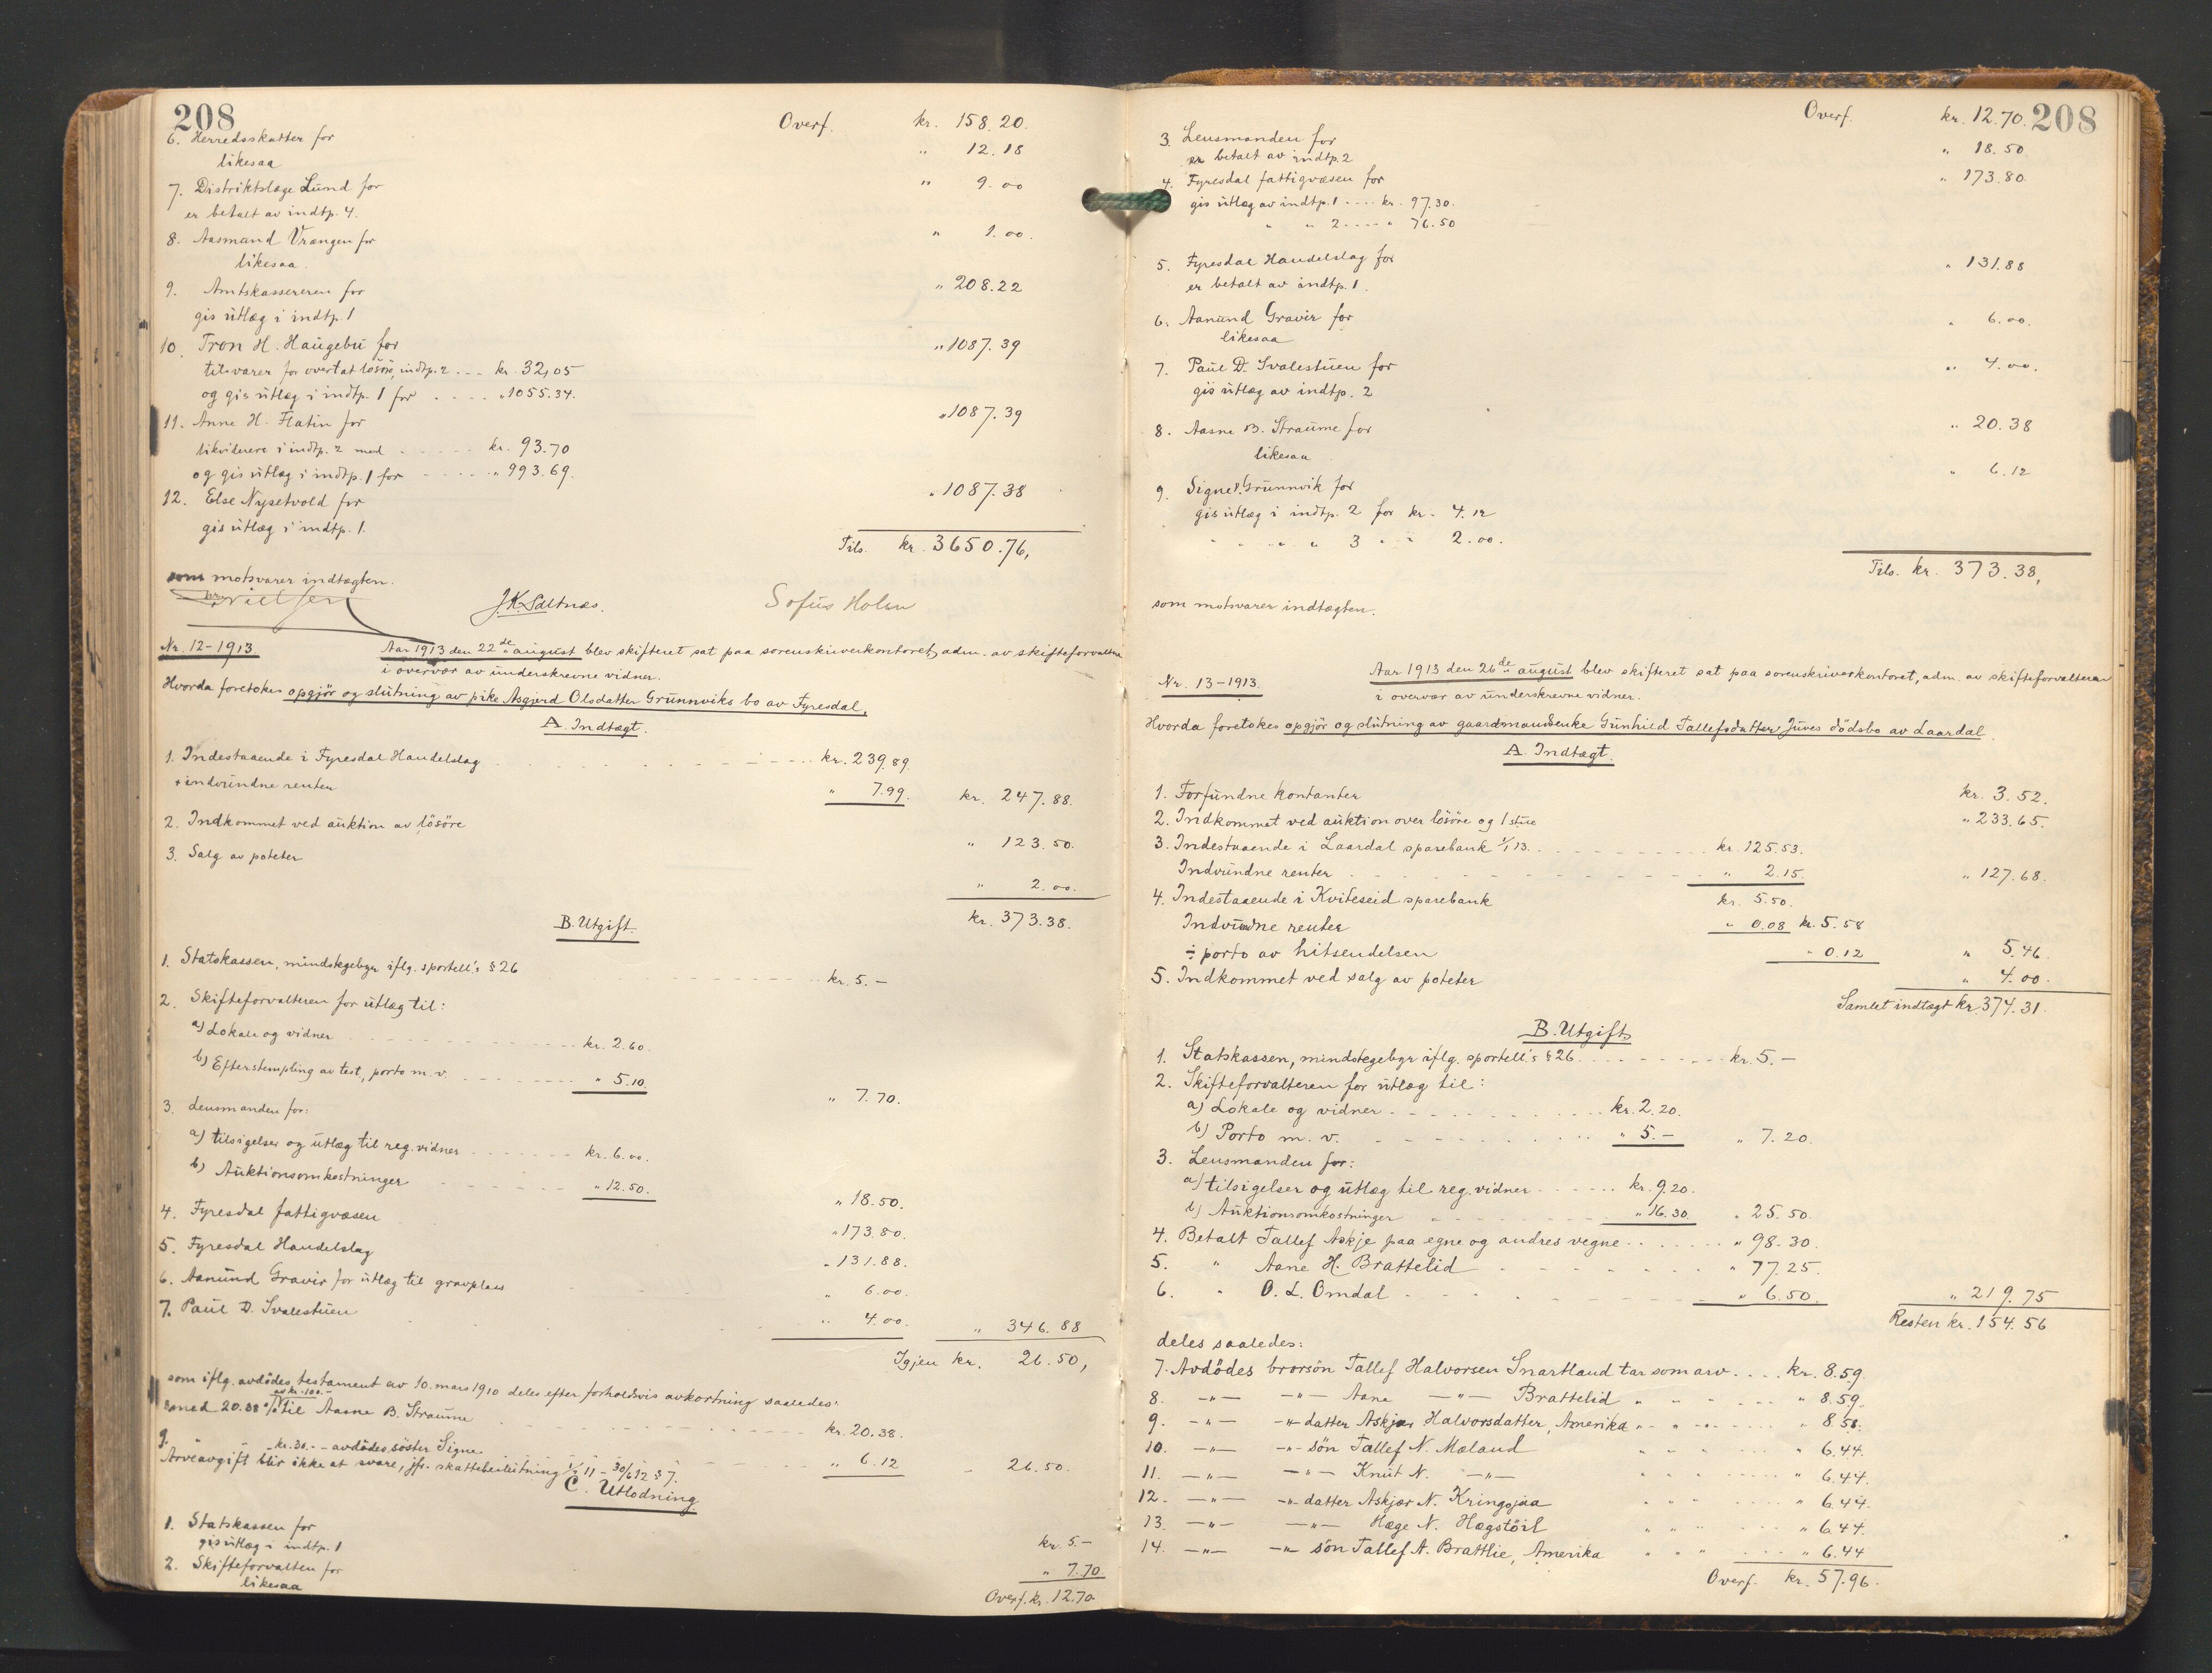 208
Overf. kr. 158.20.
6. Herredsskatter for " 12.18
likesaa
7. Distriktslæge Lund for " 9.00
er betalt av indtp. 4.
8. Aasmund Vrangen for " 1.00.
likesaa.
9. Amtskassereren for " 208.22
gis utlæg i indtp. 1
10. Tron H. Haugebu for " 1087.39
tilsvarer for overtat lösöre, indtp. 2 ... kr. 32,05
og gis utlæg i indtp. 1 for .... " 1055.34.
11. Anne H. Flatin for " 1087.39
likviderer i indtp. 2 med ..... kr. 93.70
og gis utlæg i indtp. 1 for ..... " 993.69.
12. Else Nysetvold for " 1087.38
gis utlæg i indtp. 1.
Tils. kr. 3650.76,
som motsvarer indtægten.
Nielsen J.K. Saltnæs. Sofus Holm
Nr. 12-1913. Aar 1913 den 22de august blev skifteret sat paa sorenskriverkontoret, adm. av skifteforvalteren
i overvær av underskrevne vidner.
Hvorda foretokes opgjör og slutning av pike Asgjerd Olsdatter Grunnviks bo av Fyresdal.
A. Indtægt.
1. Indestaaende i Fyresdal Handelslag ..... kr. 239.89.
+ indvundne renter " 7.99. kr. 247.88.
2. Indkommet ved auktion av lösöre " 123.50.
3. Salg av poteter " 2.00.
kr. 373.38.
B. Utgift.
1. Statskassen, mindstegebyr iflg. sportell's § 26 ..... kr. 5.—
2. Skifteforvalteren for utlæg til:
a) Lokale og vidner ..... kr. 2.60.
b) Efterstempling av test, porto m. v. ..... " 5.10. " 7.70.
3. Lensmanden for:
a) tilsigelser og utlæg til reg. vidner ..... kr. 6.00.
b) Auktionsomkostninger ..... " 12.50. " 18.50.
4. Fyresdal fattigvæsen " 173.80.
5. Fyresdal Handelslag " 131.88.
6. Aanund Gravir for utlæg til gravplass " 6.00.
7. Paul D. Svalestuen " 4.00. " 346.88
Igjen kr. 26.50,
som iflg. avdödes testament av 10. mars 1910 deles efter forholdsvis avkortning saaledes:
8. med 20.38 % av kr. 100.- til Aasne B. Straume ..... kr. 20.38.
9. " - kr. 30.- - avdödes söster Signe ..... " 6.12 - 26.50.
Arveavgift blir ikke at svare, jfr. skattebeslutning 1/7 11 - 30/6 12 § 7.
C. Utlodning.
1. Statskassen for kr. 5.—
gis utlæg i indtp. 1
2. Skifteforvalten for " 7.70
likesaa
Overf. kr. 12.70
208
Overf. kr. 12.70.
3. Lensmanden for " 18.50
er betalt av indtp. 2
4. Fyresdal fattigvæsen for " 173.80.
gis utlæg av indtp. 1 .... kr. 97.30.
" " 2 .... " 76.50
5. Fyresdal Handelslag for " 131.88
er betalt av indtp. 1.
6. Aanund Gravir for " 6.00.
likesaa
7. Paul D. Svalestuen for " 4.00.
gis utlæg av indtp. 2
8. Aasne B. Straume for " 20.38
likesaa
9. Signe Grunnvik for " 6.12
gis utlæg i indtp. 2 for kr. 4.12
" " " " 3 " " 2.00.
Tils. kr. 373.38,
som motsvarer indtægten.
Nr. 13-1913. Aar 1913 den 26de august blev skifteret sat paa sorenskriverkontoret, adm. av skifteforvalteren
i overvær av underskrevne vidner.
Hvorda foretokes opgjör og slutning av gaardmandsenke Gunhild Tallefsdatter Juves dödsbo av Laardal.
A. Indtægt.
1. Forfundne kontanter kr. 3.52.
2. Indkommet ved auktion over lösöre og 1 stue " 233.65.
3. Indestaaende i Laardal sparebank 1/1 13. ..... kr. 125.53.
Indvundne renter ..... " 2.15. " 127.68.
4. Indestaaende i Kviteseid sparebank kr. 5.50.
Indvundne renter " 0.08 kr. 5.58
÷ porto av hitsendelsen - 0.12 " 5.46.
5. Indkommet ved salg av poteter " 4.00.
Samlet indtægt kr. 374.31.
B. Utgift
1. Statskassen, mindstegebyr iflg. sportell's § 26. ..... kr. 5.—
2. Skifteforvalteren for utlæg til:
a) Lokale og vidner ..... kr. 2.20.
b) Porto m. v. ..... " 5.— " 7.20.
3. Lensmanden for:
a) tilsigelser og utlæg til reg. vidner ..... kr. 9.20.
b) Auktionsomkostninger ..... " 16.30. " 25.50.
4. Betalt Tallef Askje paa egne og andres vegne ..... " 98.30.
5. " Aane H. Brattelid ..... " 77.25.
6. " O. L. Omdal ..... " 6.50. " 219.75
Resten kr. 154.56
deles saaledes:
7. Avdödes brorsön Tallef Halvorsen Snartland tar som arv .... kr. 8.59.
8. —"— —"— Aane —"— Brattelid " " " ... " 8.59.
9. —"— —"— datter Askjær Halvorsdatter, Amerika " " " ... " 8.58.
10. —"— —"— sön Tallef N. Mæland " " " ... " 6.44.
11. —"— —"— Knut N. —"— " " " ... " 6.44.
12. —"— —"— datter Askjær N. Kringsjaa " " " ... " 6.44.
13. —"— —"— Hæge N. Hægstöil " " " ... " 6.44.
14. —"— —"— sön Tallef A. Brattlie, Amerika " " " ... " 6.44
Overf. kr. 57.96.